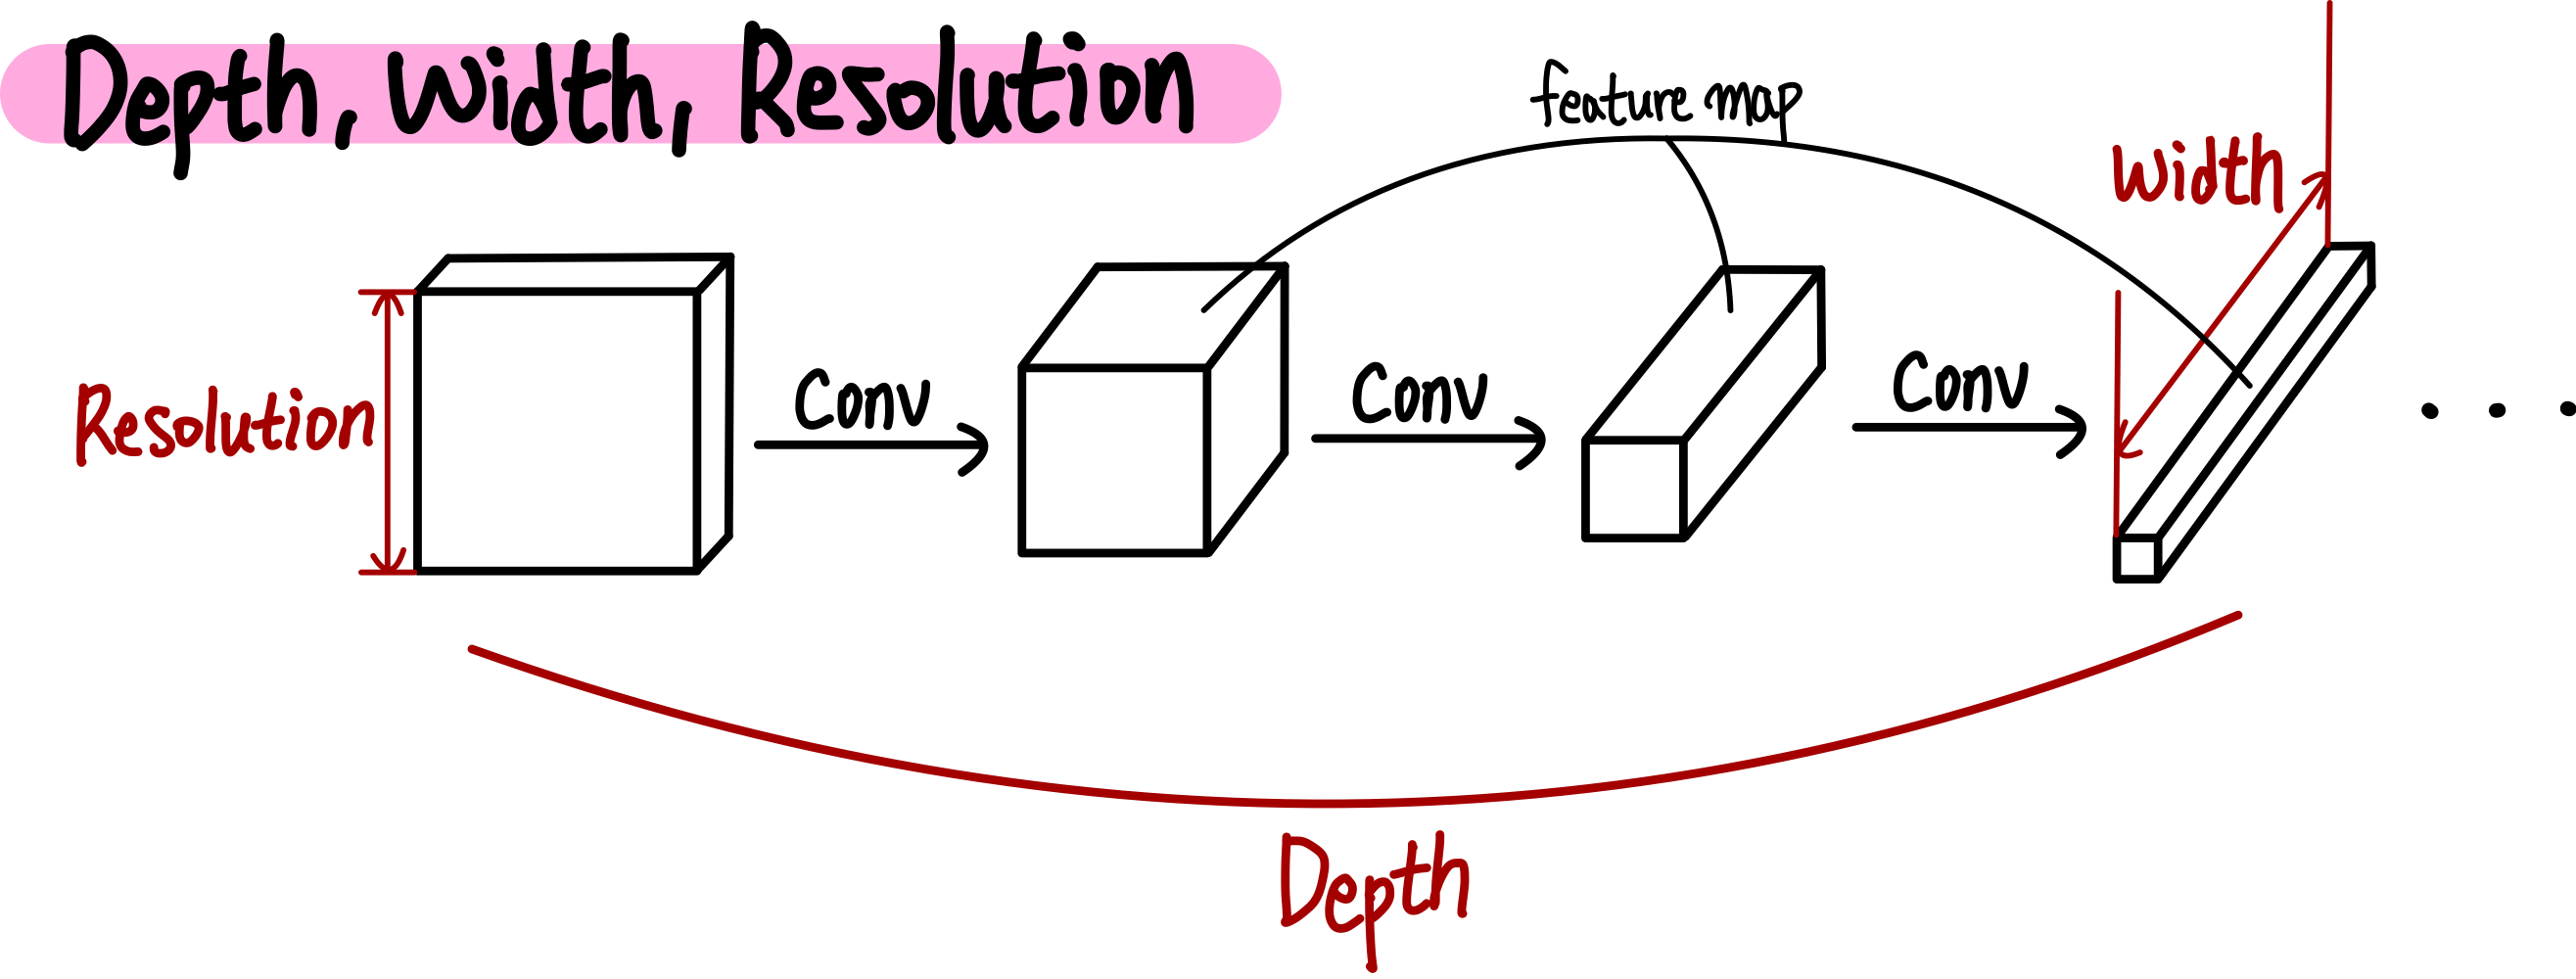 Depth, Width, Resolution
feature map
width
Resolution
Conv
Conv
Conv
Depth